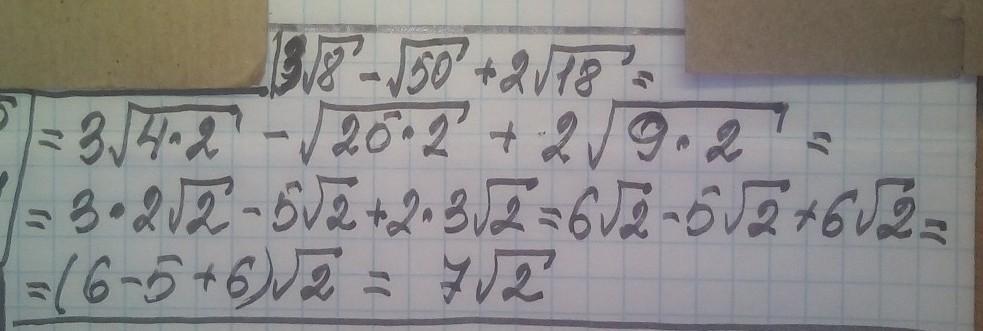 3√8 - √50 + 2√18 =
= 3√4·2 - √25·2 + 2√9·2 =
= 3·2√2 - 5√2 + 2·3√2 = 6√2 - 5√2 + 6√2 =
= (6 - 5 + 6)√2 = 7√2